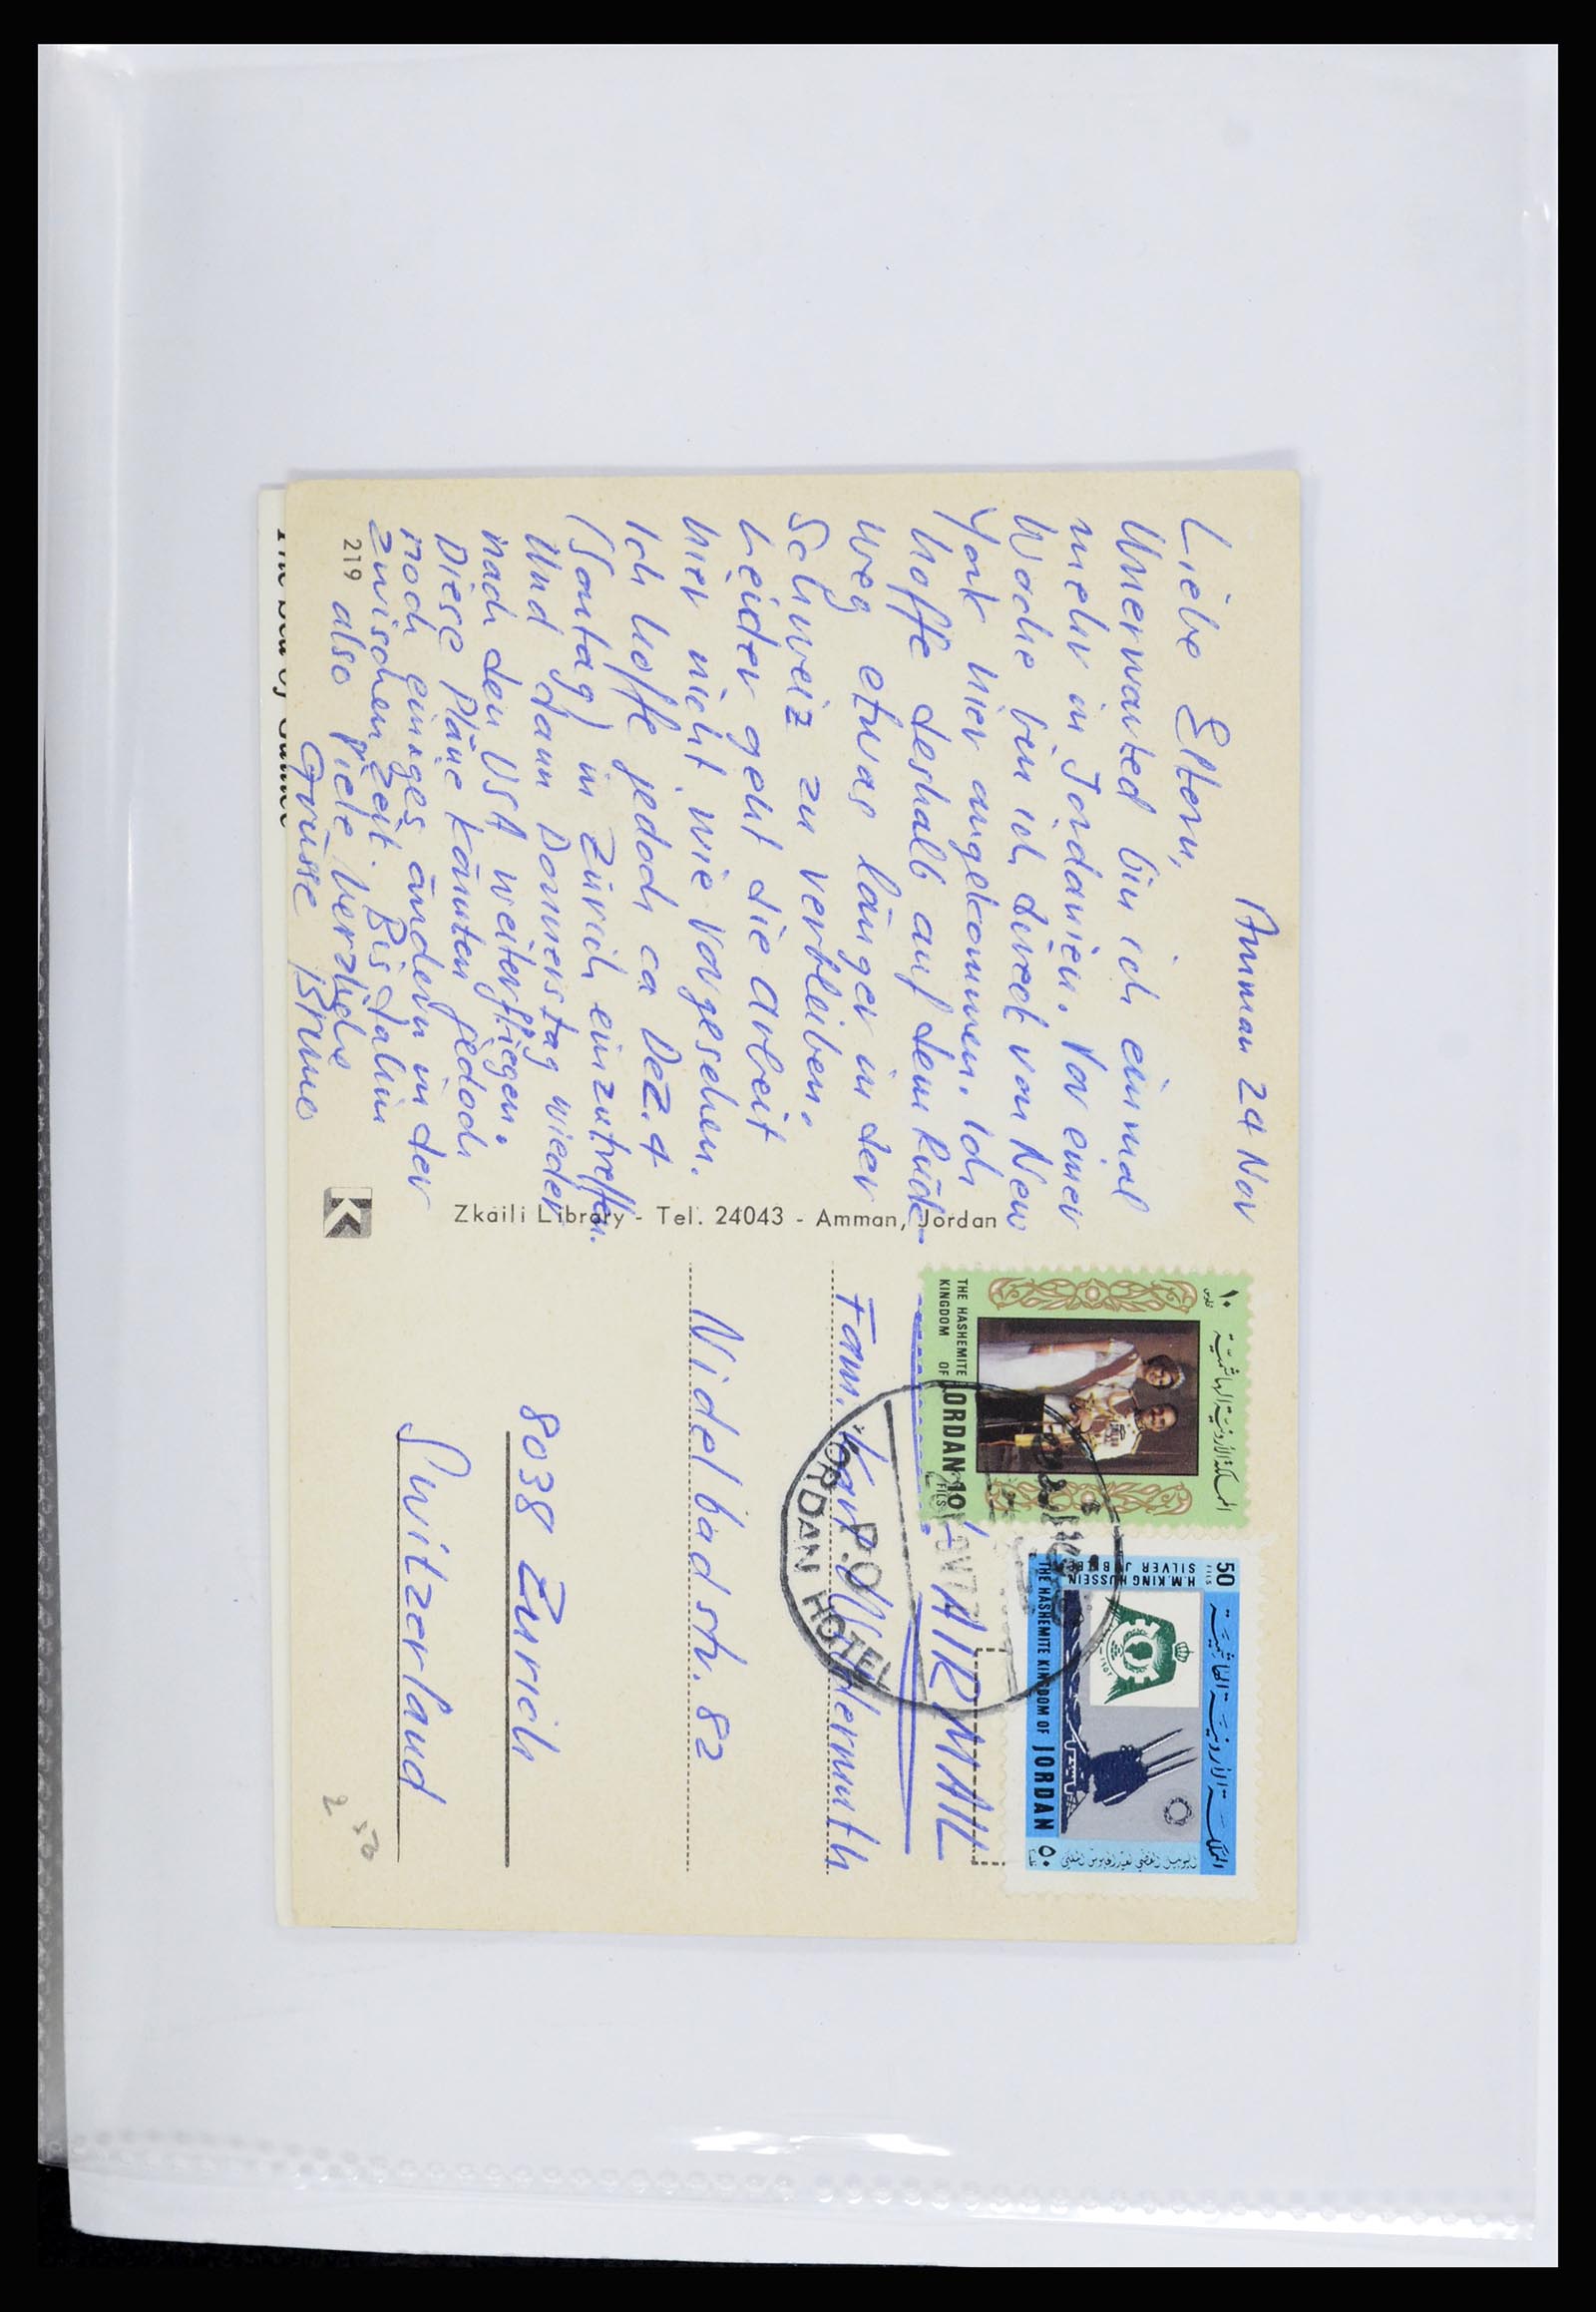 Amman 24 Nov
Liebe Eltern,
Unerwarted bin ich einmal
mehr in Jordanien. Vor einer
Woche bin ich direct von New
York hier angekommen. Ich
hoffe deshalb auf dem Rück-
weg etwas länger in der
Schweiz zu verbleiben.
Leider geht die arbeit
hier nicht wie vorgesehen.
Ich hoffe jedoch ca Dez. 4
(Sontag) in Zürich einzutreffen.
Und dann Donnerstag wieder
nach den USA weiterfliegen.
Diese Pläne könnten jedoch
noch einiges ändern in der
zwischenzeit. Bis dahin
also viele herzliche
Grüsse Bruno
219
Zkaili Library - Tel. 24043 - Amman, Jordan
THE HASHEMITE
KINGDOM OF JORDAN 10 FILS
١٠ فلوس
المملكة الأردنية الهاشمية
50 FILS
H.M. KING HUSSEIN
SILVER JUBILEE
THE HASHEMITE KINGDOM OF JORDAN
المملكة الأردنية الهاشمية
٥٠
P.O
JORDAN HOTEL
AIR MAIL
Fam. Karl
Nidelbadstr. 82
8038 Zürich
Switzerland
2 50